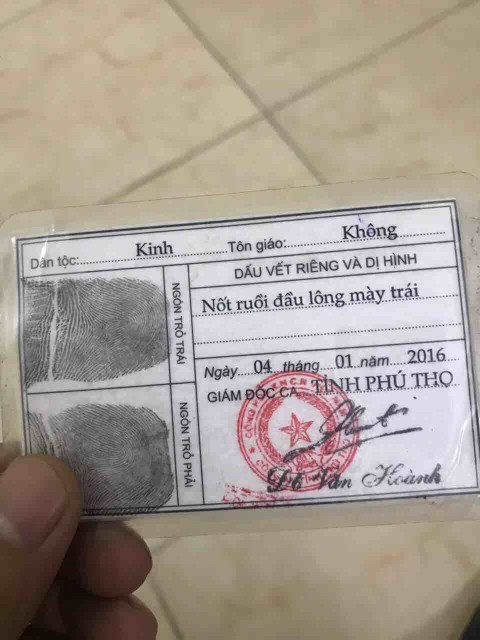 Dân tộc: Kinh Tôn giáo: Không
NGÓN TRỎ TRÁI
DẤU VẾT RIÊNG VÀ DỊ HÌNH
Nốt ruồi đầu lông mày trái
Ngày 04 tháng 01 năm 2016
NGÓN TRỎ PHẢI
GIÁM ĐỐC CA TỈNH PHÚ THỌ
Đỗ Văn Hoành